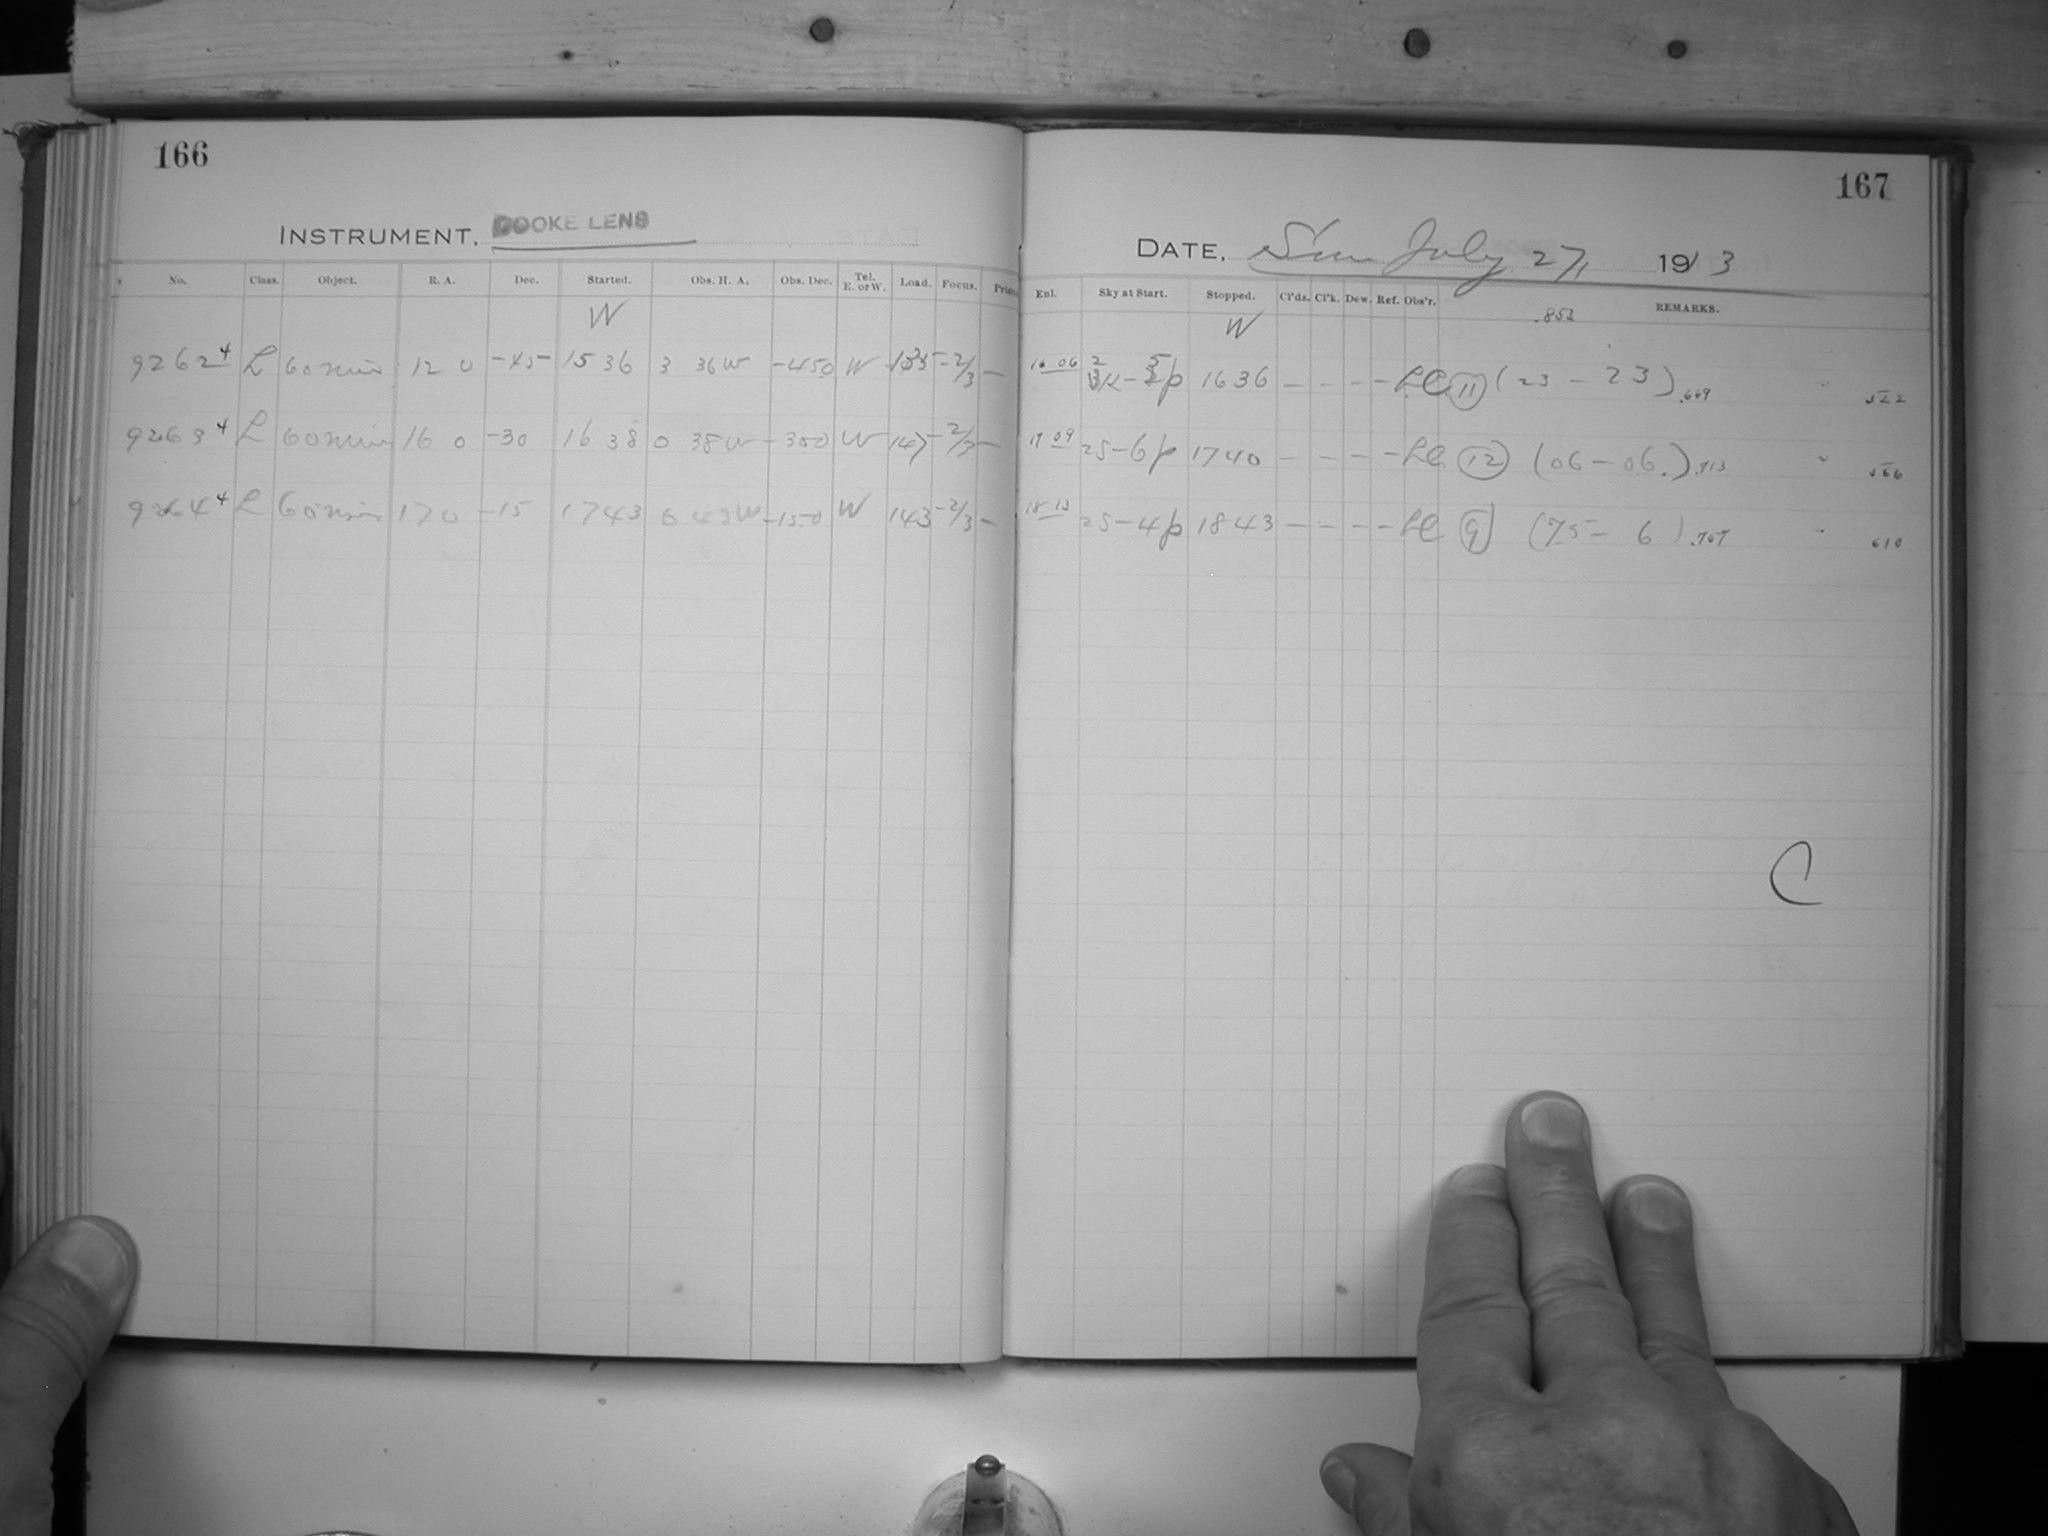 166
INSTRUMENT, COOKE LENS
No. Class. Object. R. A. Dec. Started. Obs. H. A. Obs. Dec. Tel. E. or W. Load. Focus.
W
9262 4 L 60 min 12 0 -45 15 36 3 36 W -45 0 W -2/3 —
9263 4 L 60 min 16 0 -30 16 38 0 38 W -30 0 W 147 -2/3 —
9264 4 L 60 min 17 0 -15 17 43 0 43 W -15 0 W 143 -2/3 —
167
DATE, Sun July 27, 1913
Enl. Sky at Start. Stopped. Cl'ds. Cl'k. Dew. Ref. Obs'r. REMARKS.
W .853
16 06 16 36 — - - - LC 11 (23 - 23) .669 " 522
17 09 2S-6p 17 40 — - - - LC 12 (06 - 06.) .713 " 566
18 13 2S-4p 18 43 — - - - LC 9 (75 - 6) .757 " 610
C